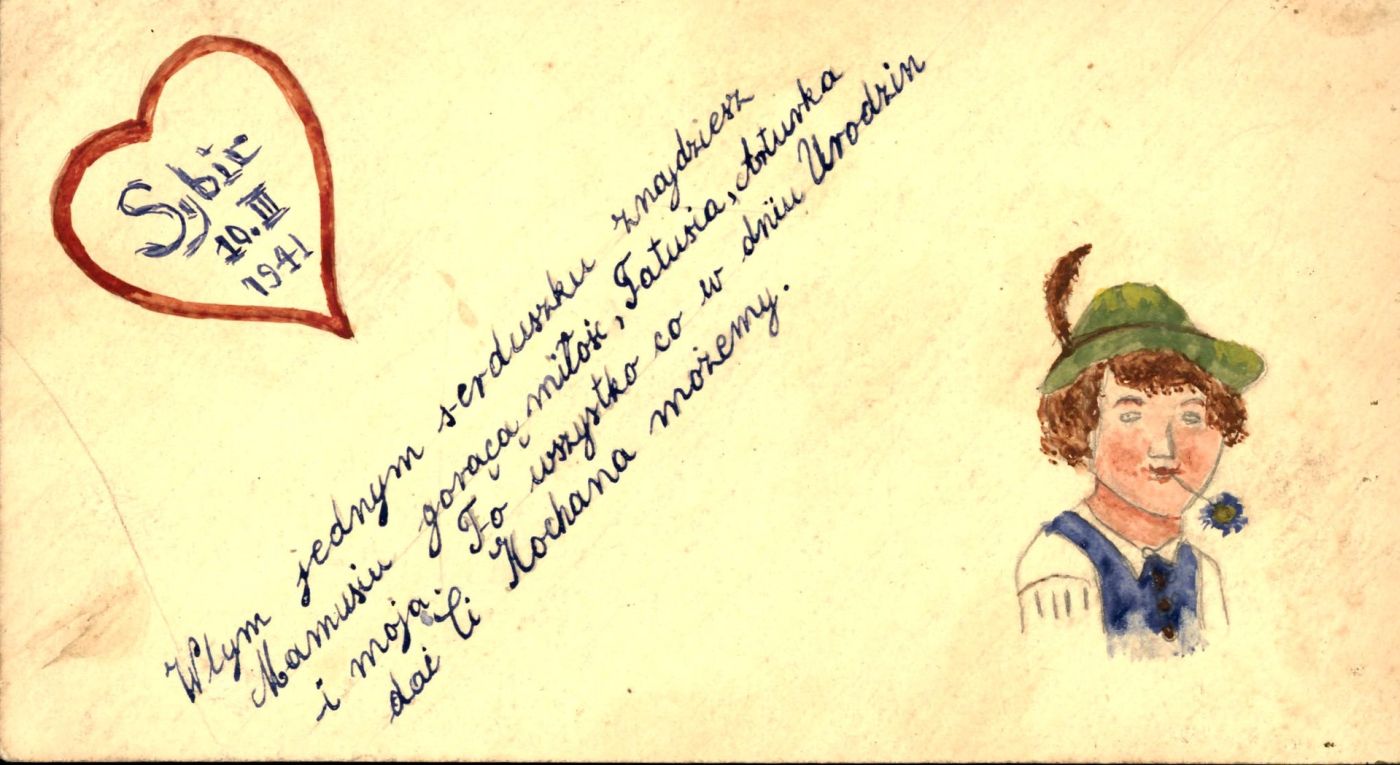 Sybir
10.III
1941
W tym jednym serduszku znajdziesz
Mamusiu gorącą miłość, Tatusia, Arturka
i moją. To wszystko co w dniu Urodzin
dać Ci Kochana możemy.